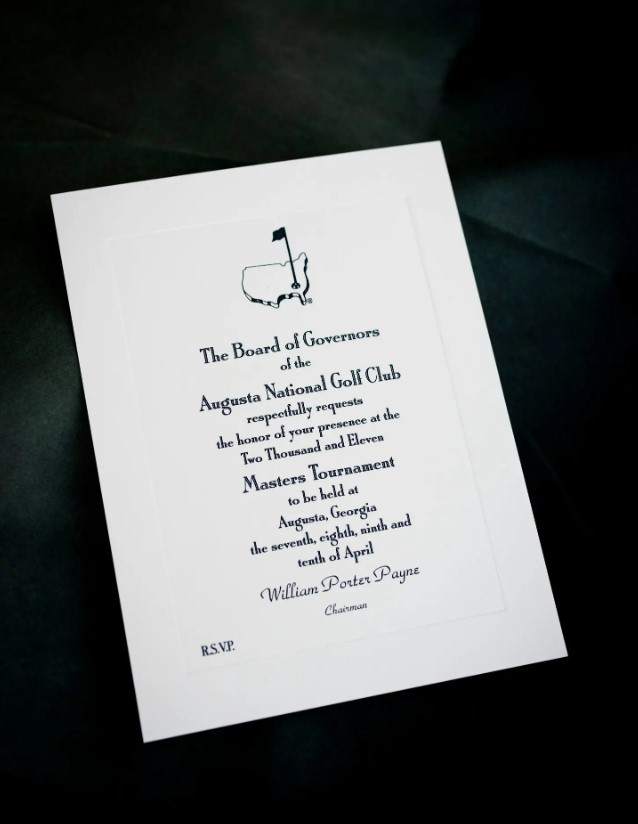 ®
The Board of Governors
of the
Augusta National Golf Club
respectfully requests
the honor of your presence at the
Two Thousand and Eleven
Masters Tournament
to be held at
Augusta, Georgia
the seventh, eighth, ninth and
tenth of April
William Porter Payne
Chairman
R.S.V.P.